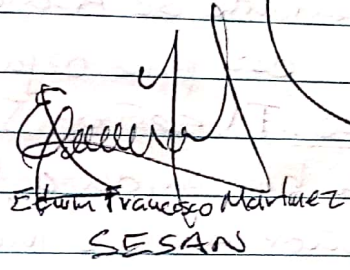 Edwin Francisco Martinez
SESAN